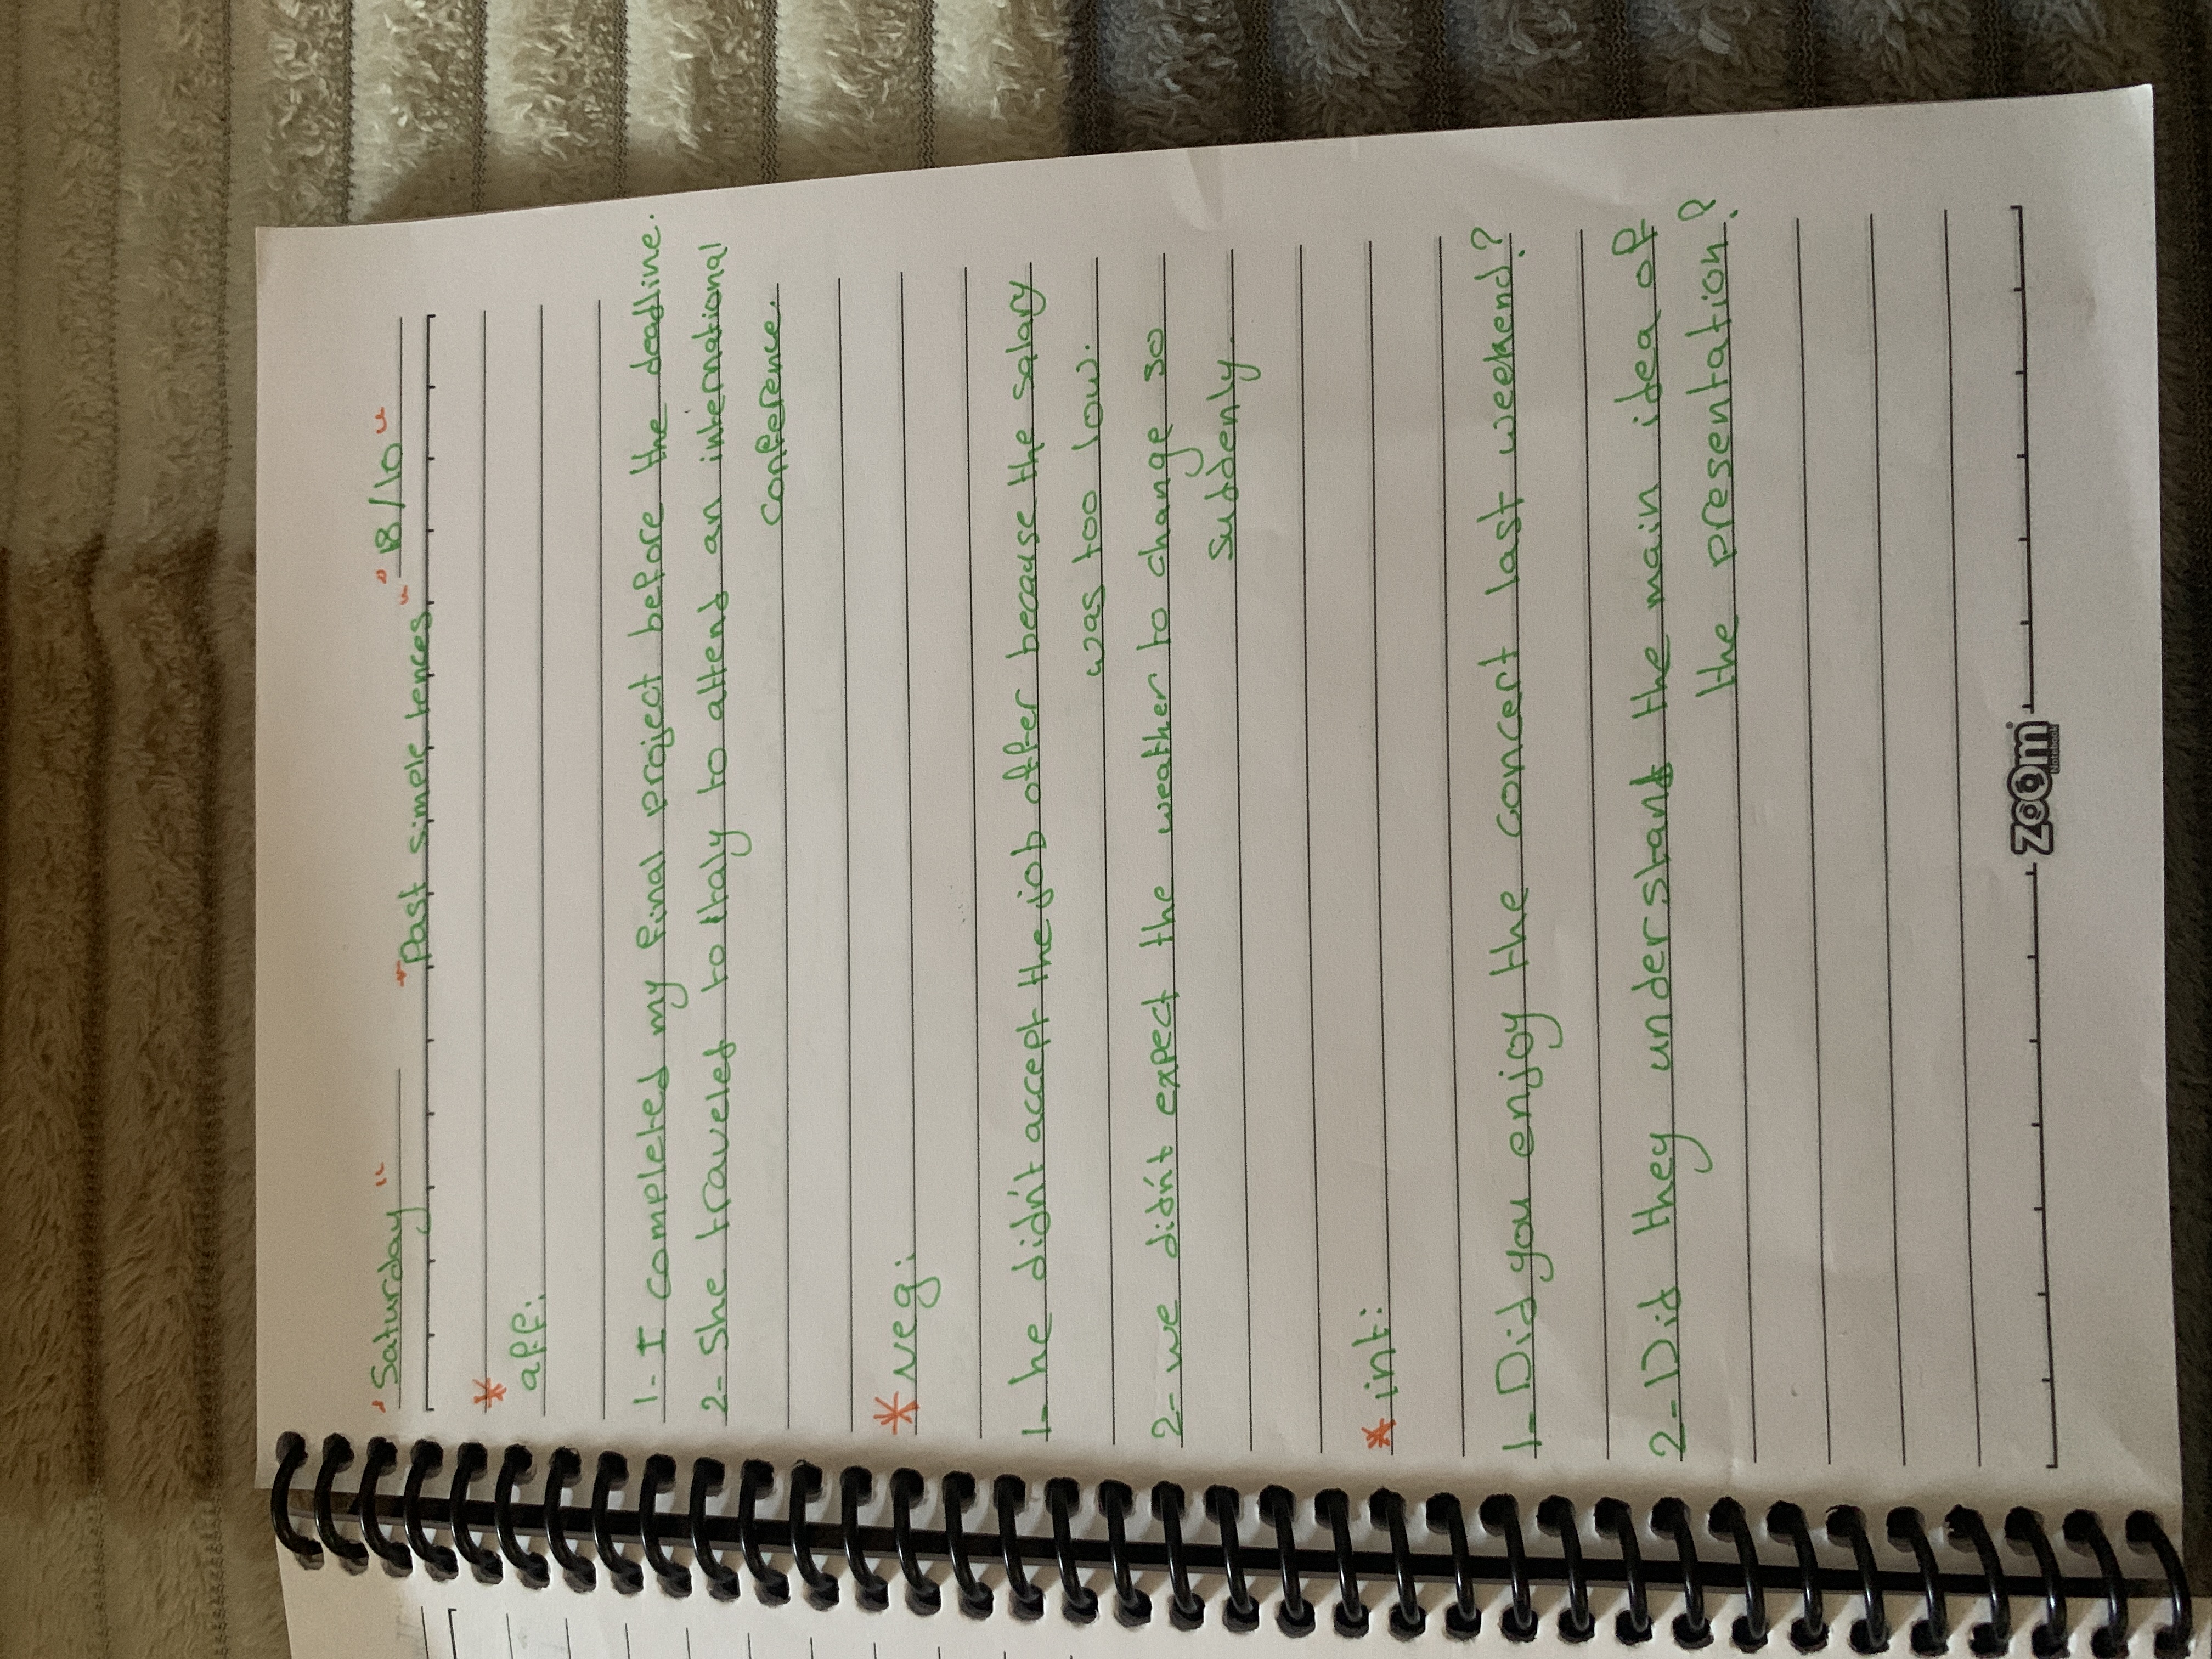 "Saturday" "18/10"
"Past simple tences"
*
aff:
1- I completed my final project before the deadline.
2- She traveled to Italy to attend an international
conference.
* Neg:
1- he didn't accept the job offer because the salary
was too low.
2- we didn't expect the weather to change so
suddenly.
* int:
1- Did you enjoy the concert last weekend?
2- Did they understand the main idea of
the presentation?
zoom
Notebook